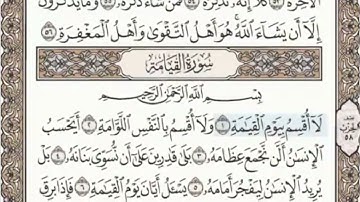 ٱلْأٓخِرَةَ ۝٥٣ كَلَّآ إِنَّهُۥ تَذْكِرَةٌ ۝٥٤ فَمَن شَآءَ ذَكَرَهُۥ ۝٥٥ وَمَا يَذْكُرُونَ
إِلَّآ أَن يَشَآءَ ٱللَّهُ هُوَ أَهْلُ ٱلتَّقْوَىٰ وَأَهْلُ ٱلْمَغْفِرَةِ ۝٥٦
سُورَةُ ٱلْقِيَامَةِ
بِسْمِ ٱللَّهِ ٱلرَّحْمَٰنِ ٱلرَّحِيمِ
لَآ أُقْسِمُ بِيَوْمِ ٱلْقِيَٰمَةِ ۝١ وَلَآ أُقْسِمُ بِٱلنَّفْسِ ٱللَّوَّامَةِ ۝٢ أَيَحْسَبُ
ٱلْإِنسَٰنُ أَلَّن نَّجْمَعَ عِظَامَهُۥ ۝٣ بَلَىٰ قَٰدِرِينَ عَلَىٰٓ أَن نُّسَوِّىَ بَنَانَهُۥ ۝٤ بَلْ
يُرِيدُ ٱلْإِنسَٰنُ لِيَفْجُرَ أَمَامَهُۥ ۝٥ يَسْـَٔلُ أَيَّانَ يَوْمُ ٱلْقِيَٰمَةِ ۝٦ فَإِذَا بَرِقَ